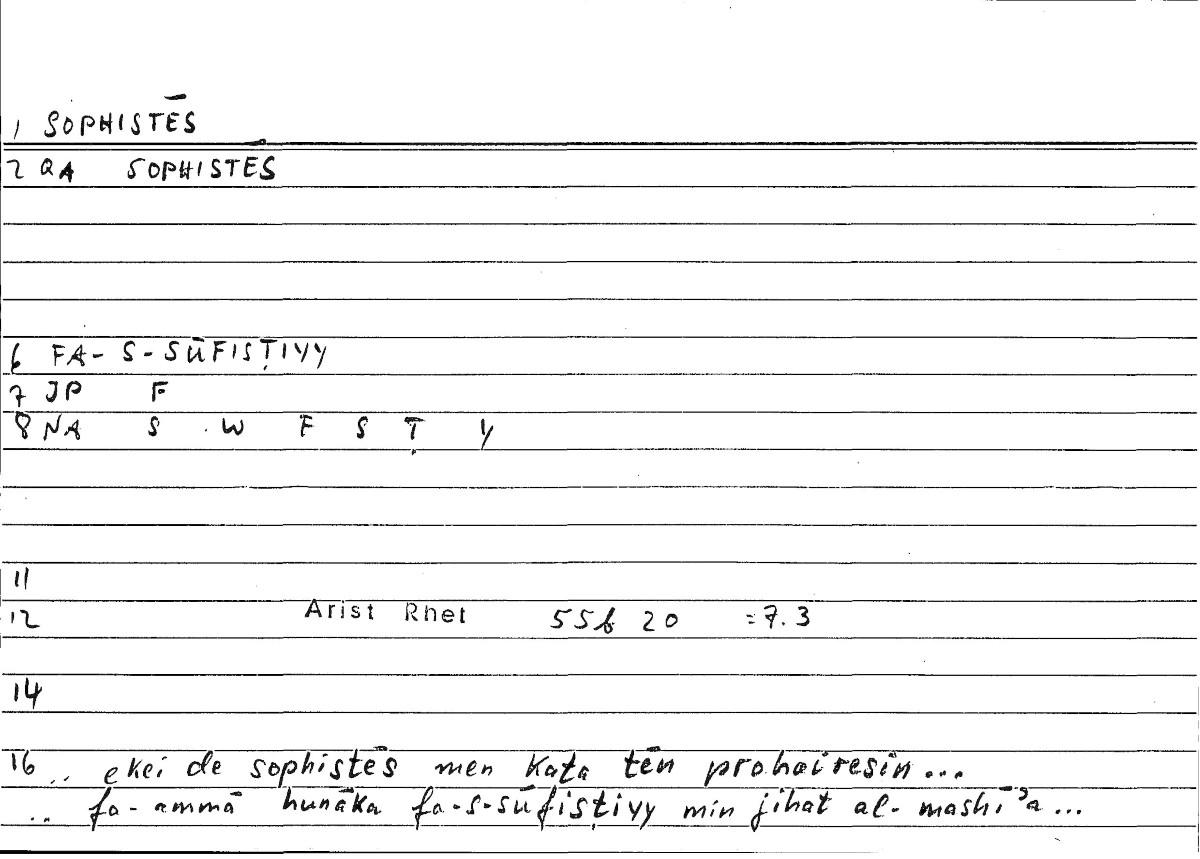 1 SOPHISTĒS
2 QA SOPHISTĒS
6 FA-S-SŪFISṬIYY
7 JP F
8 NA S W F S Ṭ Y
11
12 Arist Rhet 55b 20 =7.3
14
16 .. ekei de sophistēs men kata tēn prohairesin...
.. fa-ammā hunāka fa-s-sūfisṭiyy min jihat al-mashīʾa...